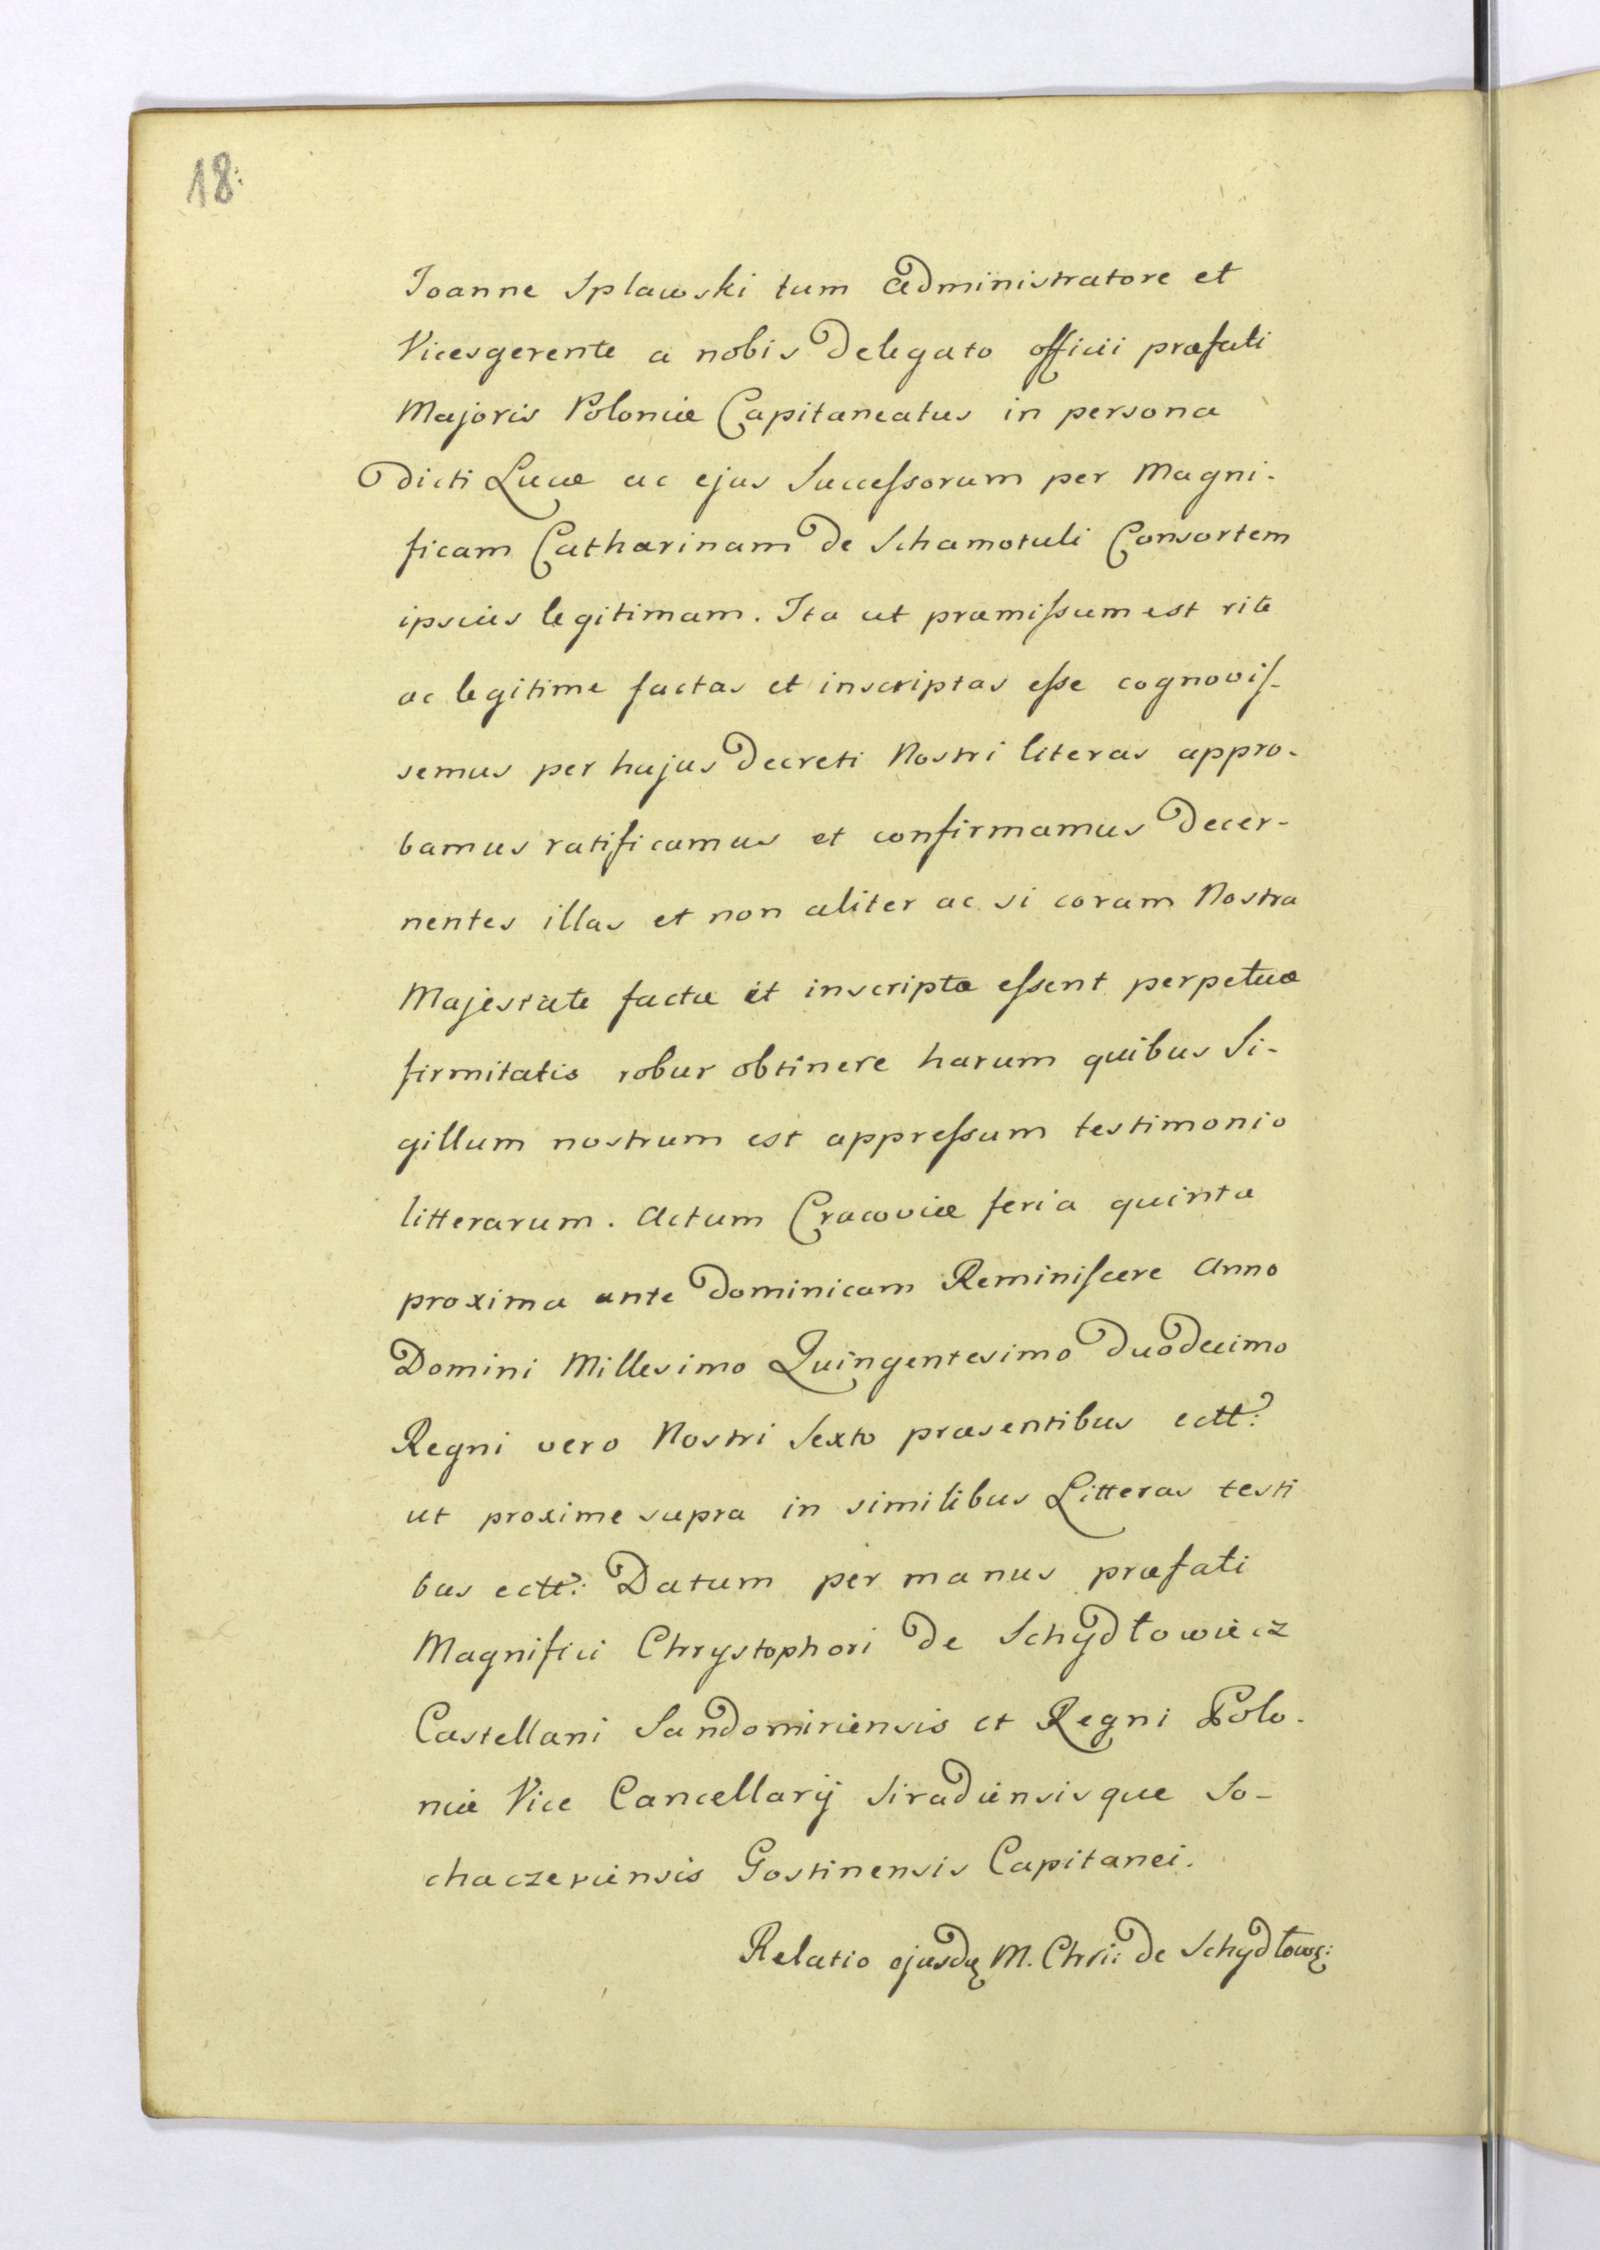 18.
Joanne Splawski tum administratore et
Vicesgerente a nobis delegato officii præfati
Majoris Poloniæ Capitaneatus in persona
dicti Lucæ ac ejus Succeſsorum per Magni-
ficam Catharinam de Schamotuli Consortem
ipsius legitimam. Ita ut præmiſsum est rite
ac legitime factas et inscriptas eſse cognoviſ-
semus per hujus decreti Nostri literas appro-
bamus ratificamus et confirmamus decer-
nentes illas et non aliter ac si coram Nostra
Majestate factæ et inscriptæ eſsent perpetuæ
firmitatis robur obtinere harum quibus Si-
gillum nostrum est appreſsum testimonio
litterarum. Actum Cracoviæ feria quinta
proxima ante dominicam Reminiſcere Anno
Domini Millesimo Quingentesimo duodecimo
Regni vero Nostri Sexto præsentibus ectt:
ut proxime supra in similibus Litteras testi
bus ectt: Datum per manus præfati
Magnifici Chrystophori de Schydłowiecz
Castellani Sandomiriensis et Regni Polo-
niæ Vice Cancellarij Siradiensisque So-
chaczeviensis Gostinensis Capitanei.
Relatio ejusdę M. Chrii: de Schydłowę: